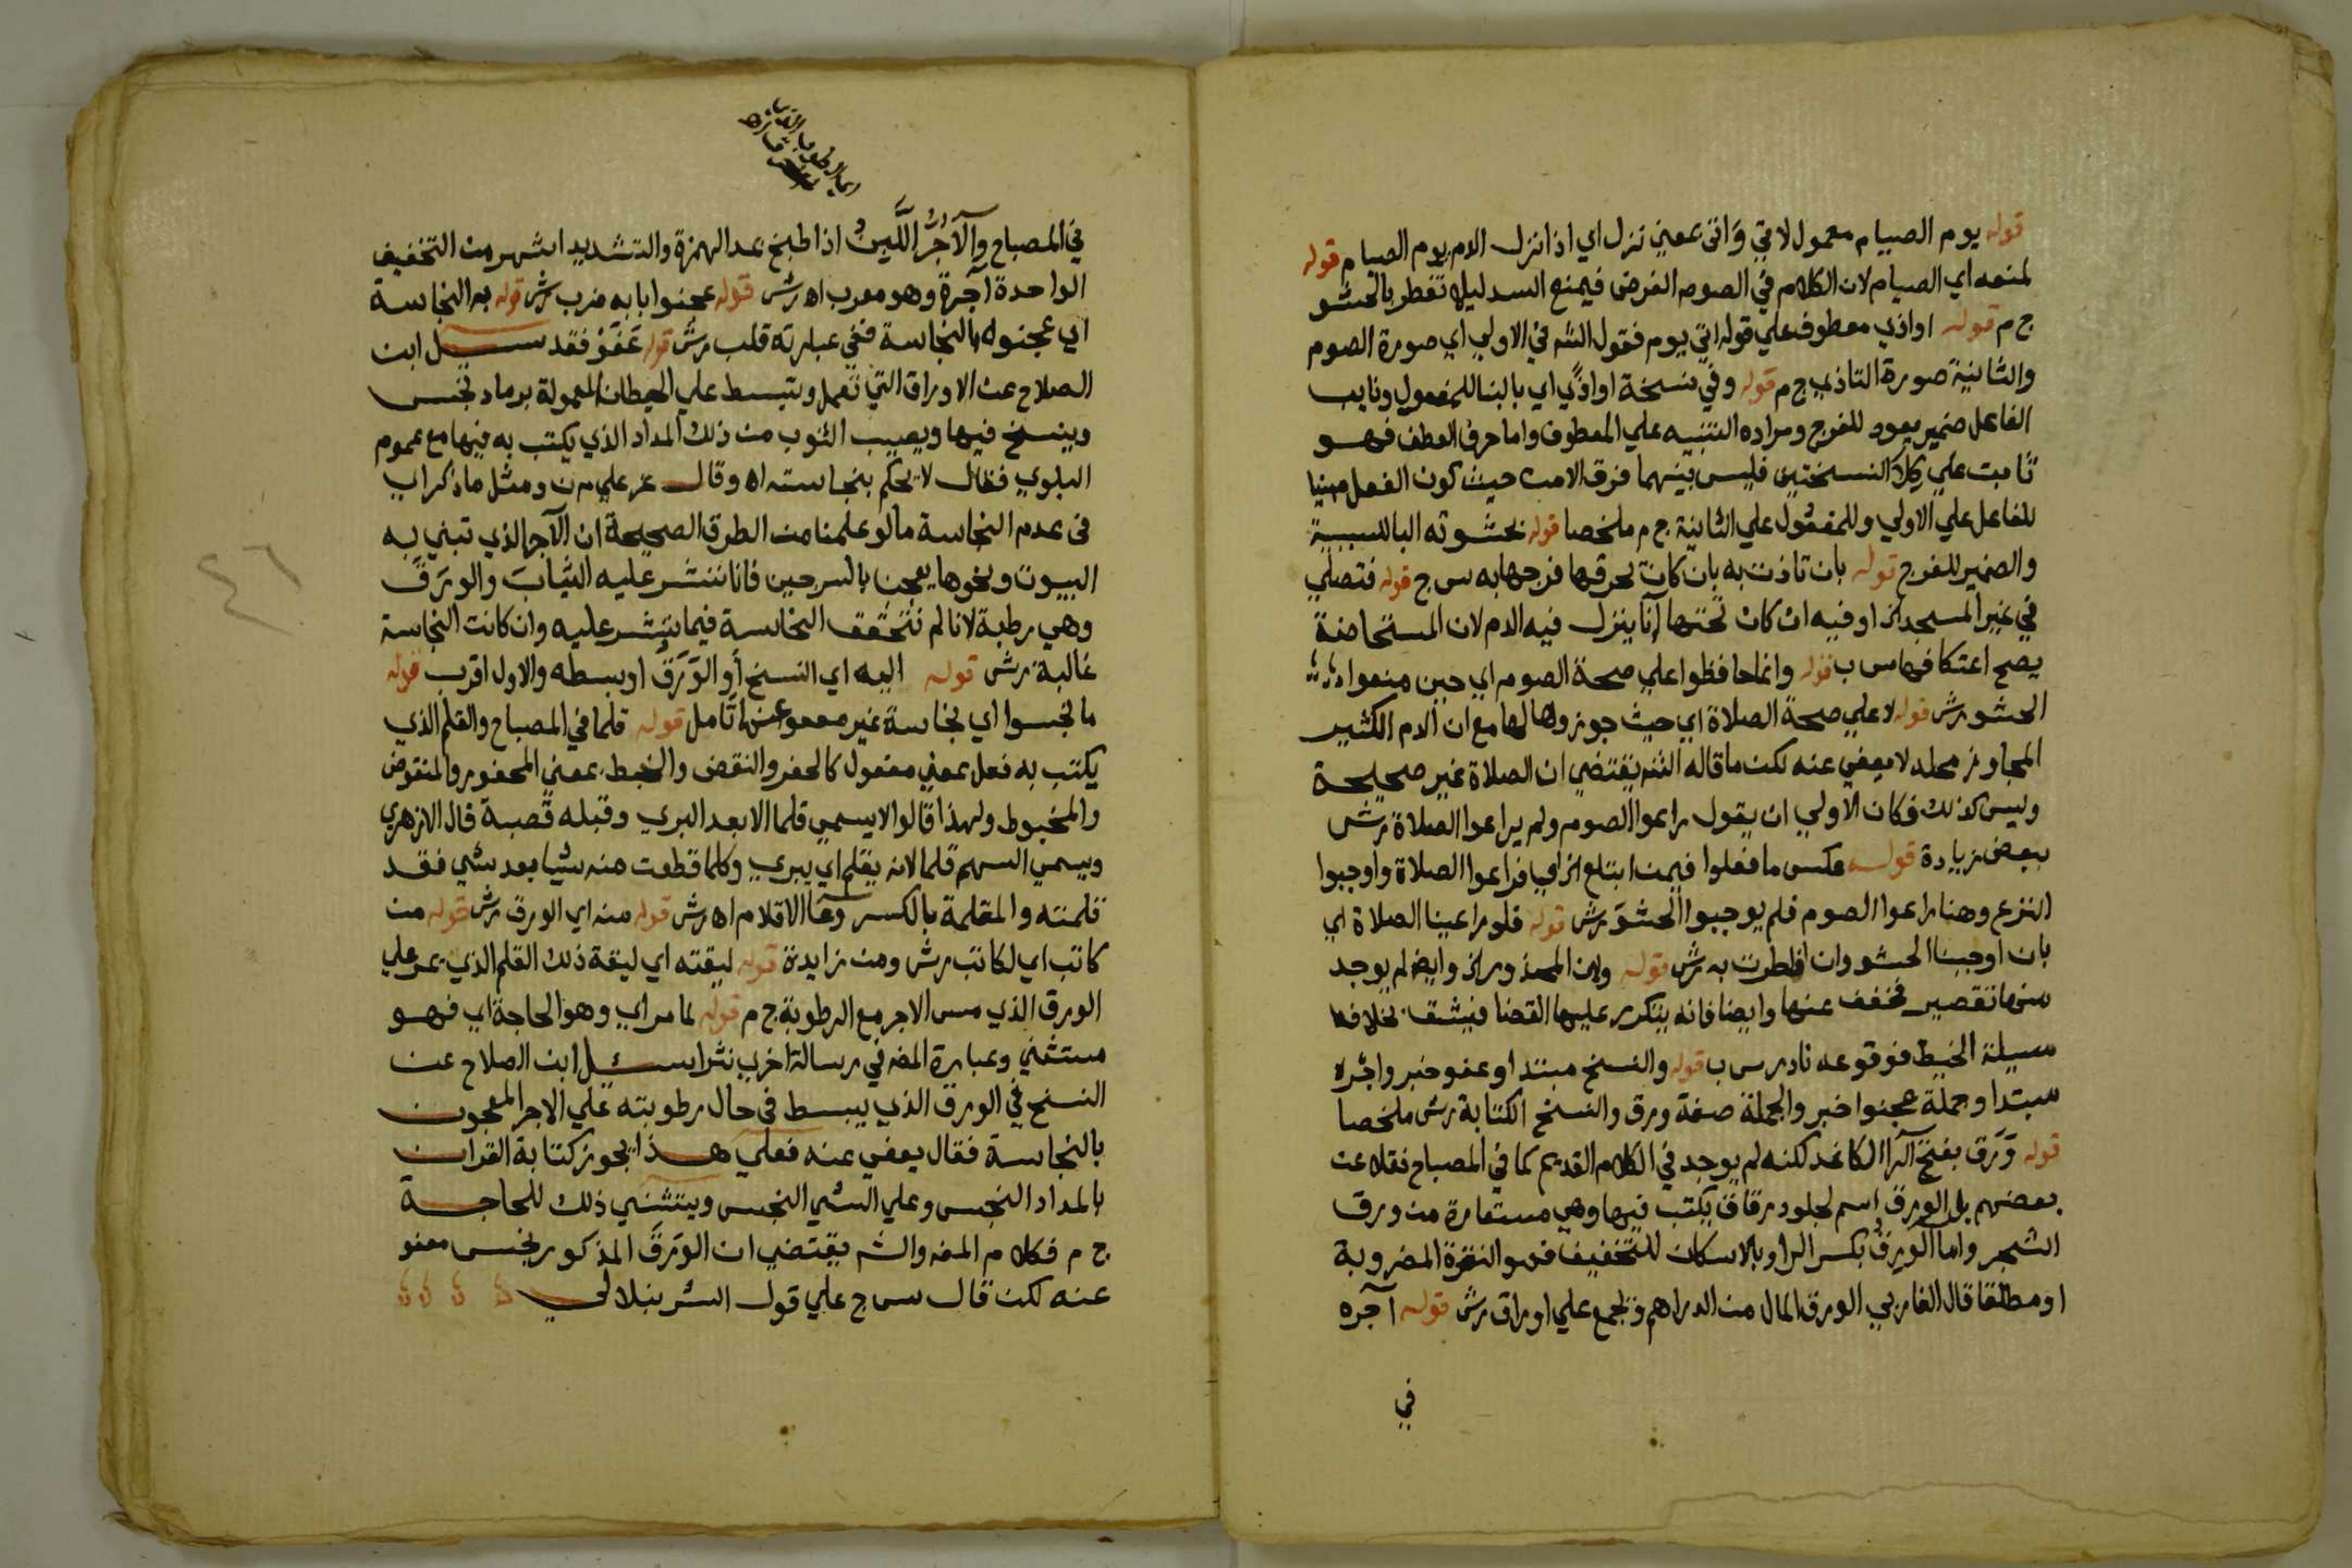 قوله يوم الصيام معمول لاتي وَاتى بمعني نزل اي اذا نزل الدم يوم الصيام قوله
لمنعه اي الصيام لان الكلام في الصوم الفرض فيمنع السد ليلا تفطر بالحشو
ج م قوله اواذي معطوف علي قوله اتي يوم فقول الشـ في الاولي اي صورة الصوم
والثانية صورة التاذي ج م قوله وفي نسخة اواذي اي بالبنا للمفعول ونايب
الفاعل ضمير يعود للفرج ومراده التنبيه علي المعطوف واما حرف العطف فهو
ثابت علي كِلاَ النسختين فليس بينهما فرق الامن حيث كون الفعل مبنيا
للفاعل علي الاولي وللمفعول علي الثانية ج م ملخصا قوله بحشوته البا للسببية
والضمير للفرج قوله بان تاذت به بان كان يحرقها فرجها به س ج قوله فتصلي
في غير المسجد اي او فيه ان كان تحتها انا ينزل فيه الدم لان المستحاضة
يصح اعتكافها س ب قوله وانما حافظوا علي صحة الصوم اي حين منعوا
الحشو رش قوله لا علي صحة الصلاة اي حيث جوزوها لها مع ان الدم الكثير
المجاوز محله لا يعفي عنه لكن ما قاله الشـ يقتضي ان الصلاة غير صحيحة
وليس كذلك فكان الاولي ان يقول راعوا الصوم ولم يراعوا الصلاة رش
ببعض زيادة قوله عكس ما فعلوا فيمن ابتلع اي فراعوا الصلاة واوجبوا
النزع وهنا راعوا الصوم فلم يوجبوا الحشوَ رش قوله فلو راعينا الصلاة اي
بان اوجبنا الحشو وان افطرت به رش قوله ولان المحذور اي وايضا لم يوجد
منها تقصير فخفف عنها وايضا فانه يتكرر عليها القضا فيشق بخلاف
مسيلة الخيط فوقوعه نادر س ب قوله والنسخ مبتدا وعفو خبر واجُره
مبتدا وجملة عجنوا خبر والجملة صفة ورق والنسخ الكتابة رش ملخصا
قوله وَرَق بفتح الرا الكاغد لكنه لم يوجد في الكلام القديم كما في المصباح فقلا عن
بعضهم بل الورق اسم لجلود رقاق يكتب فيها وهي مستعارة من ورق
الشجر واما الورِق بكسر الرا وبالاسكان للتخفيف فهو النقرة المضروبة
او مطلقا قال الفاربي الورق المال من الدراهم ويجمع علي اوراق رش قوله آجره
في
في المصباح والآجُرُّ اللَّبِنُ اذا طبخ بمد الهمزة والتشديد اشهر من التخفيف
الواحدة آجرة وهو معرب اه رش قوله عجنوا بابه ضرب رش قوله به النجاسة
اي عجنوه بالنجاسة ففي عبارته قلب رش قوله عَفَوْ فقد سيل ابن
الصلاح عن الاوراق التي تعمل وتبسط علي الحيطان المعمولة برماد نجس
وينسخ فيها ويصيب الثوب من ذلك المداد الذي يكتب به فيها مع عموم
البلوي فقال لا يحكم بنجاسته اه وقال ع علي م ن ومثل ما ذكر اي
في عدم النجاسة ما لو علمنا من الطرق الصحيحة ان الآجر الذي تبني به
البيوت ونحوها يعجن بالسرجين فانا ننشر عليه الثيابَ والورَقَ
وهي رطبة لانا لم نتحقق النجاسة فيما ينشر عليه وان كانت النجاسة
غالبة رش قوله اليه اي النسخ أو الوَرَقَ او بسطه والاول اقرب قوله
ما نجسوا اي نجاسة غير معفو عنها تامل قوله قلما في المصباح والقلم الذي
يكتب به فعل بمعني مفعول كالحفر والنقض والخبط بمعني المحفور والمنقوض
والمخبوط ولهذا قالوا لا يسمي قلما الا بعد البري وقبله قصبة قال الازهري
ويسمي السهم قلما لانه يقلم اي يبري وكلما قطعت منه شيا بعد شي فقد
قلمته والمقلمة بالكسر وعا الاقلام اه رش قوله منه اي الورق رش قوله من
كاتب اي لكاتب رش ومن زايدة قوله ليقته اي ليقة ذلك القلم الذي يمر علي
الورق الذي مس الاجر مع الرطوبة ج م قوله لما مر اي وهو الحاجة اي فهو
مستثني وعبارة المصـ في رسالة اخري نثرا سئل ابن الصلاح عن
النسخ في الورق الذي يبسط في حال رطوبته علي الاجر المعجون
بالنجاسة فقال يعفي عنه فعلي هذا يجوز كتابة القران
بالمداد النجس وعلي الشي النجس ويستثني ذلك للحاجة
ج م فكلام المصـ والشـ يقتضي ان الورَقَ المذكور نجس معفو
عنه لكن قال س ج علي قول الشرنبلالي
٤٦